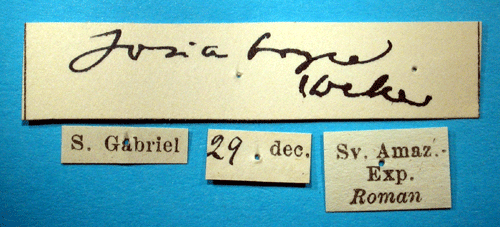 Josia
S. Gabriel
29 dec.
Sv. Amaz.-
Exp.
Roman